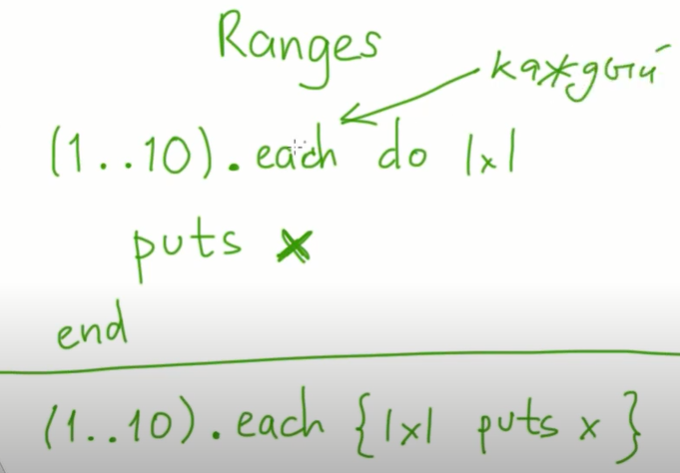 Ranges
каждый
(1..10).each do |x|
puts x
end
(1..10).each {|x| puts x}